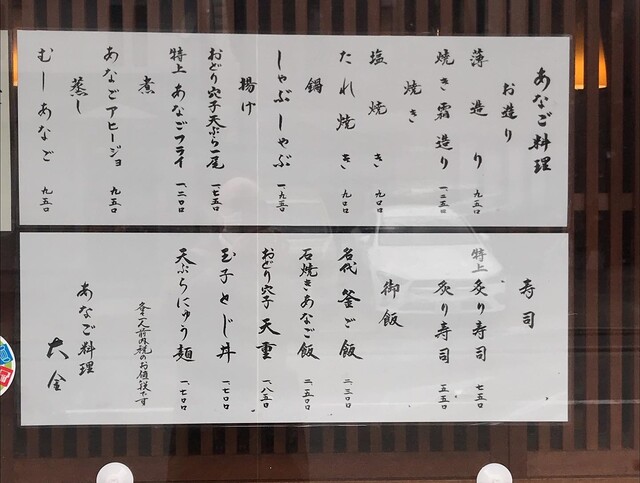 あなご料理
お造り
薄造り 九五〇
焼き霜造り 一二五〇
焼き
塩焼き 九〇〇
たれ焼き 九〇〇
鍋
しゃぶしゃぶ 一九五〇
揚げ
おどり穴子天ぷら一尾 一七五〇
特上あなごフライ 一二〇〇
煮
あなごアヒージョ 九五〇
蒸し
むしあなご 九五〇
寿司
特上炙り寿司 七五〇
炙り寿司 五五〇
御飯
名代釜ご飯 二三〇〇
石焼きあなご飯 二一五〇
おどり穴子天重 一八五〇
玉子とじ丼 一七〇〇
天ぷらにゅう麺 一七〇〇
各一人前内税のお値段です
あなご料理
大金